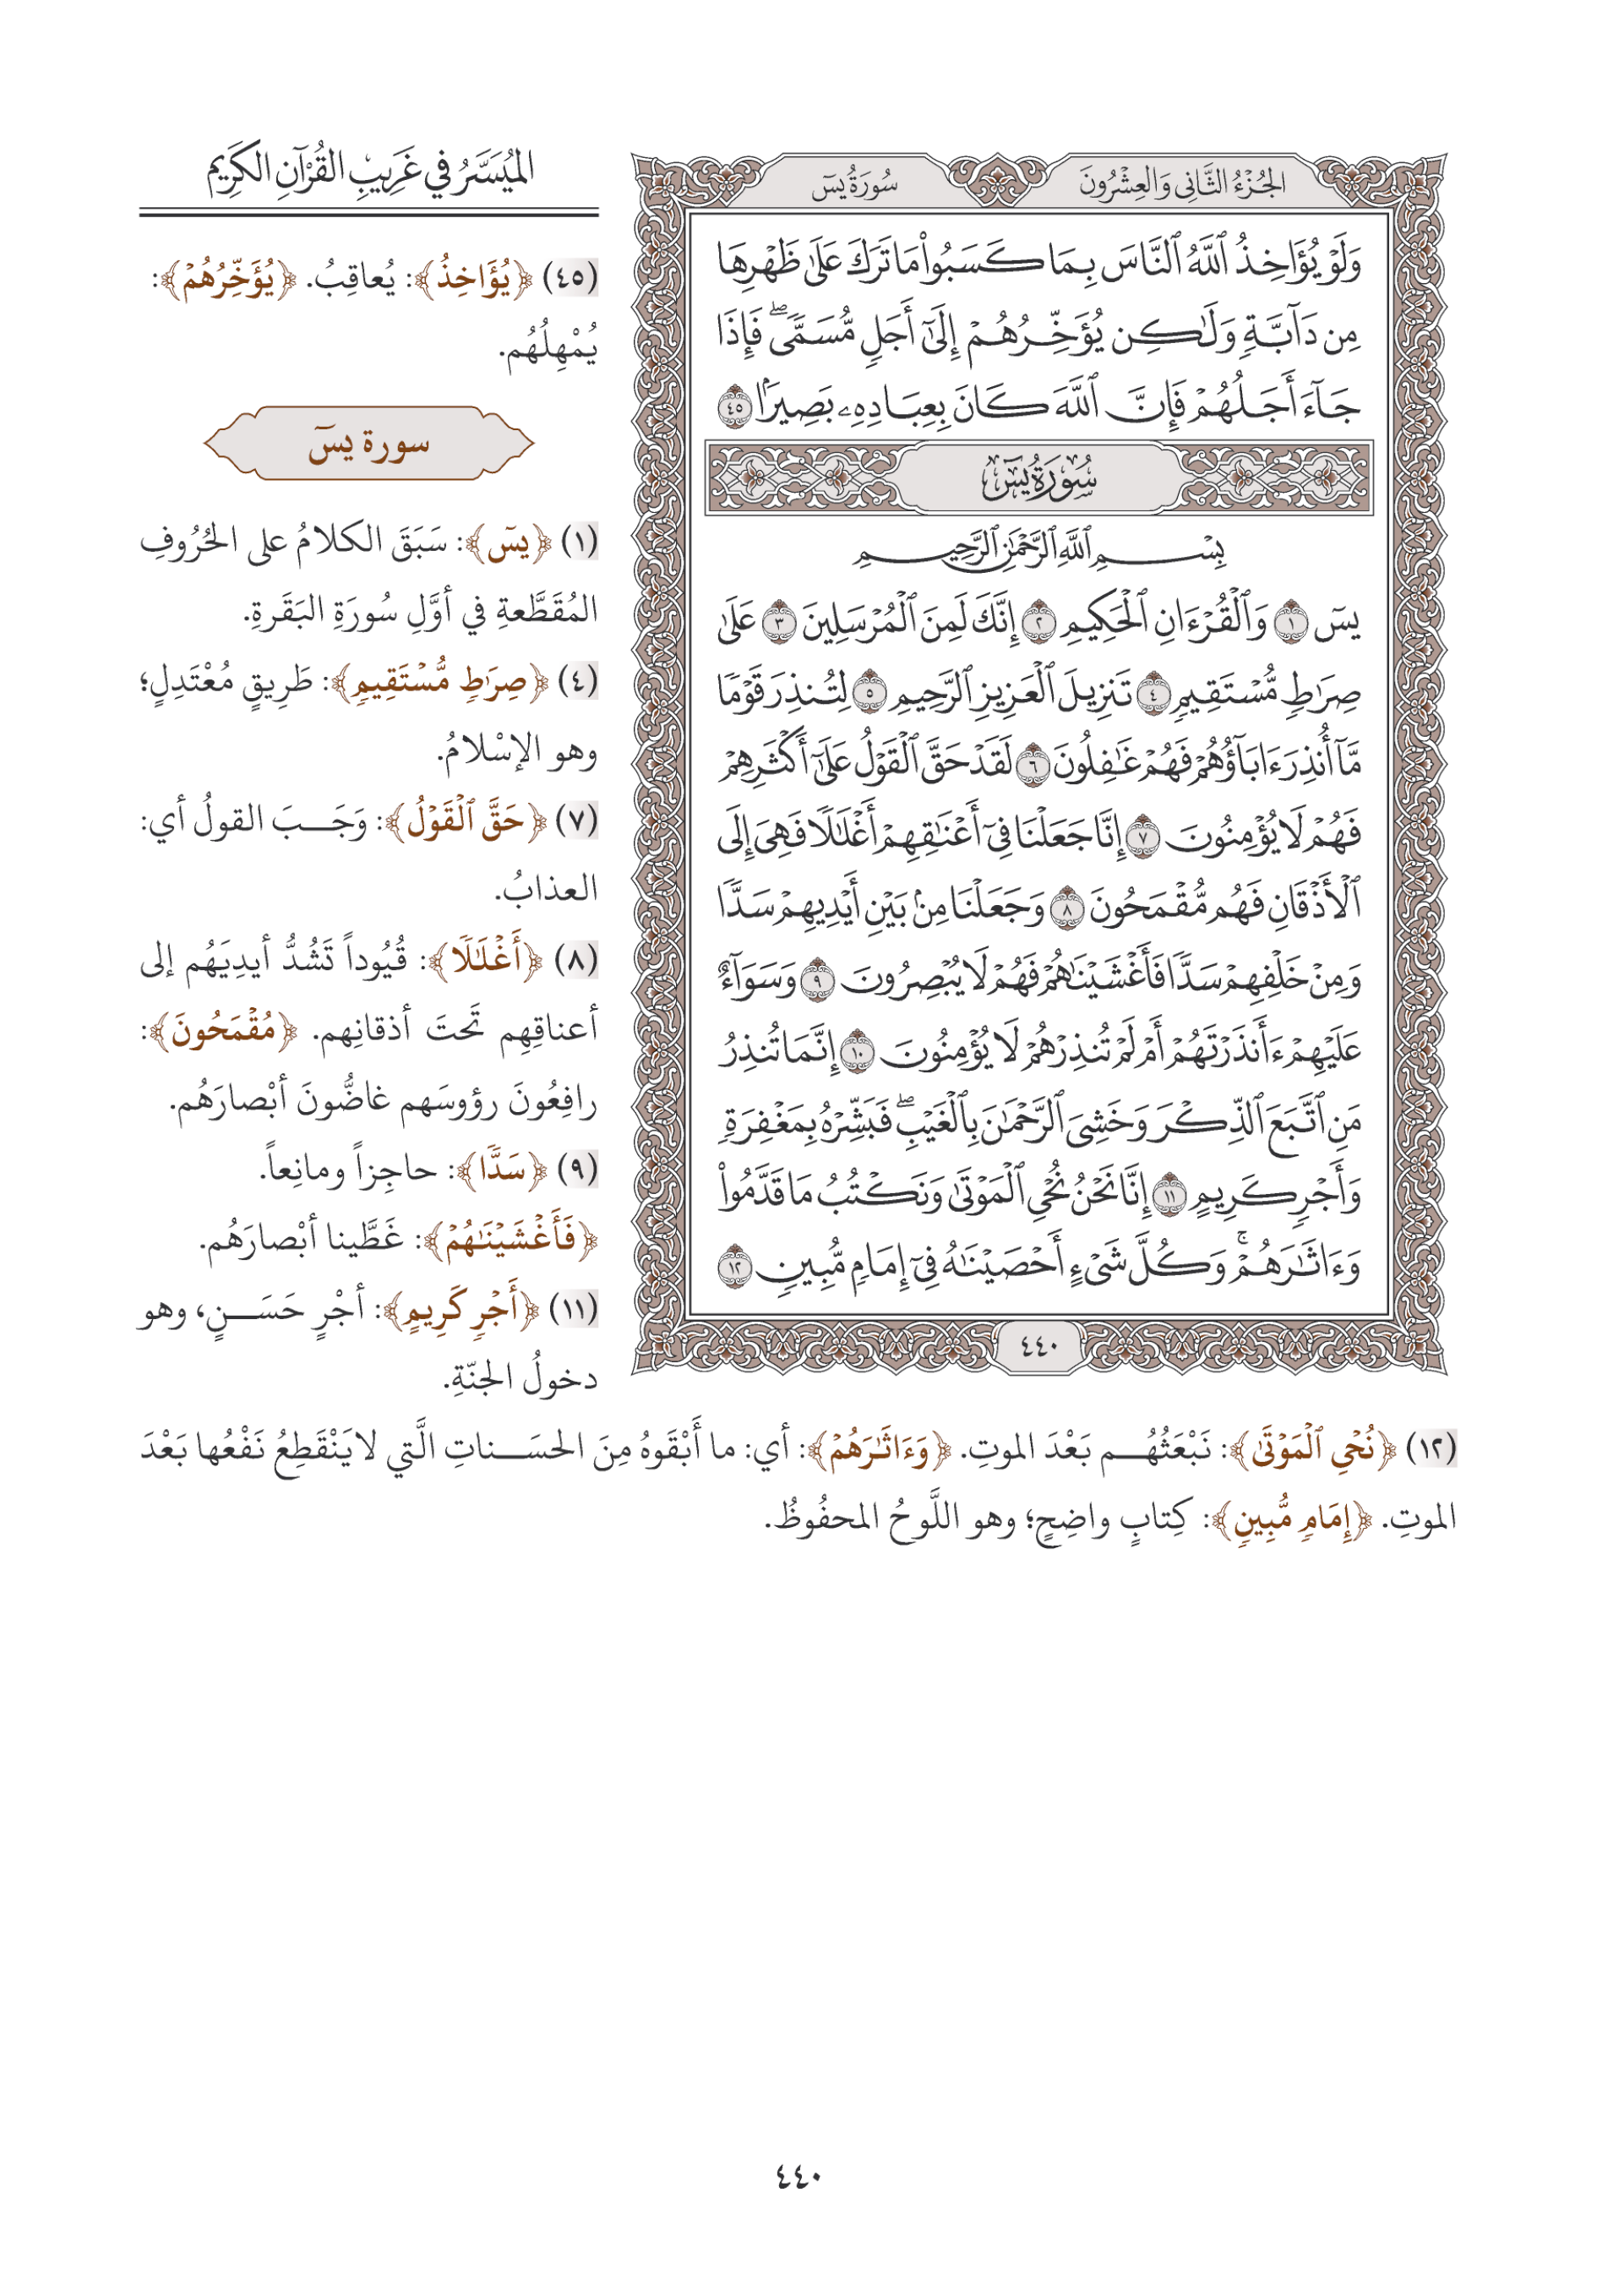 الجُزْءُ الثَّانِي وَالعِشْرُونَ
سُورَةُ يسٓ
وَلَوۡ يُؤَاخِذُ ٱللَّهُ ٱلنَّاسَ بِمَا كَسَبُواْ مَا تَرَكَ عَلَىٰ ظَهۡرِهَا
مِن دَآبَّةٖ وَلَٰكِن يُؤَخِّرُهُمۡ إِلَىٰٓ أَجَلٖ مُّسَمّٗىۖ فَإِذَا
جَآءَ أَجَلُهُمۡ فَإِنَّ ٱللَّهَ كَانَ بِعِبَادِهِۦ بَصِيرَۢا ٤٥
سُورَةُ يسٓ
بِسۡمِ ٱللَّهِ ٱلرَّحۡمَٰنِ ٱلرَّحِيمِ
يسٓ ١ وَٱلۡقُرۡءَانِ ٱلۡحَكِيمِ ٢ إِنَّكَ لَمِنَ ٱلۡمُرۡسَلِينَ ٣ عَلَىٰ
صِرَٰطٖ مُّسۡتَقِيمٖ ٤ تَنزِيلَ ٱلۡعَزِيزِ ٱلرَّحِيمِ ٥ لِتُنذِرَ قَوۡمٗا
مَّآ أُنذِرَ ءَابَآؤُهُمۡ فَهُمۡ غَٰفِلُونَ ٦ لَقَدۡ حَقَّ ٱلۡقَوۡلُ عَلَىٰٓ أَكۡثَرِهِمۡ
فَهُمۡ لَا يُؤۡمِنُونَ ٧ إِنَّا جَعَلۡنَا فِيٓ أَعۡنَٰقِهِمۡ أَغۡلَٰلٗا فَهِيَ إِلَى
ٱلۡأَذۡقَانِ فَهُم مُّقۡمَحُونَ ٨ وَجَعَلۡنَا مِنۢ بَيۡنِ أَيۡدِيهِمۡ سَدّٗا
وَمِنۡ خَلۡفِهِمۡ سَدّٗا فَأَغۡشَيۡنَٰهُمۡ فَهُمۡ لَا يُبۡصِرُونَ ٩ وَسَوَآءٌ
عَلَيۡهِمۡ ءَأَنذَرۡتَهُمۡ أَمۡ لَمۡ تُنذِرۡهُمۡ لَا يُؤۡمِنُونَ ١٠ إِنَّمَا تُنذِرُ
مَنِ ٱتَّبَعَ ٱلذِّكۡرَ وَخَشِيَ ٱلرَّحۡمَٰنَ بِٱلۡغَيۡبِۖ فَبَشِّرۡهُ بِمَغۡفِرَةٖ
وَأَجۡرٖ كَرِيمٍ ١١ إِنَّا نَحۡنُ نُحۡيِ ٱلۡمَوۡتَىٰ وَنَكۡتُبُ مَا قَدَّمُواْ
وَءَاثَٰرَهُمۡۚ وَكُلَّ شَيۡءٍ أَحۡصَيۡنَٰهُ فِيٓ إِمَامٖ مُّبِينٖ ١٢
٤٤٠
المُيَسَّرُ في غَرِيبِ القُرْآنِ الكَرِيمِ
(٤٥) ﴿يُؤَاخِذُ﴾: يُعاقِبُ. ﴿يُؤَخِّرُهُمۡ﴾:
يُمْهِلُهُم.
سورة يسٓ
(١) ﴿يسٓ﴾: سَبَقَ الكلامُ على الحُرُوفِ
المُقَطَّعةِ في أوَّلِ سُورَةِ البَقَرةِ.
(٤) ﴿صِرَٰطٖ مُّسۡتَقِيمٖ﴾: طَرِيقٍ مُعْتَدِلٍ؛
وهو الإسْلامُ.
(٧) ﴿حَقَّ ٱلۡقَوۡلُ﴾: وَجَبَ القولُ أي:
العذابُ.
(٨) ﴿أَغۡلَٰلٗا﴾: قُيُوداً تَشُدُّ أيدِيَهُم إلى
أعناقِهِم تَحتَ أذقانِهم. ﴿مُقۡمَحُونَ﴾:
رافِعُونَ رؤوسَهم غاضُّونَ أبْصارَهُم.
(٩) ﴿سَدّٗا﴾: حاجِزاً ومانِعاً.
﴿فَأَغۡشَيۡنَٰهُمۡ﴾: غَطَّينا أبْصارَهُم.
(١١) ﴿أَجۡرٖ كَرِيمٍ﴾: أجْرٍ حَسَنٍ، وهو
دخولُ الجنّةِ.
(١٢) ﴿نُحۡيِ ٱلۡمَوۡتَىٰ﴾: نَبْعَثُهُم بَعْدَ الموتِ. ﴿وَءَاثَٰرَهُمۡ﴾: أي: ما أَبْقَوهُ مِنَ الحسَناتِ الَّتي لا يَنْقَطِعُ نَفْعُها بَعْدَ
الموتِ. ﴿إِمَامٖ مُّبِينٖ﴾: كِتابٍ واضِحٍ؛ وهو اللَّوحُ المحفُوظُ.
٤٤٠